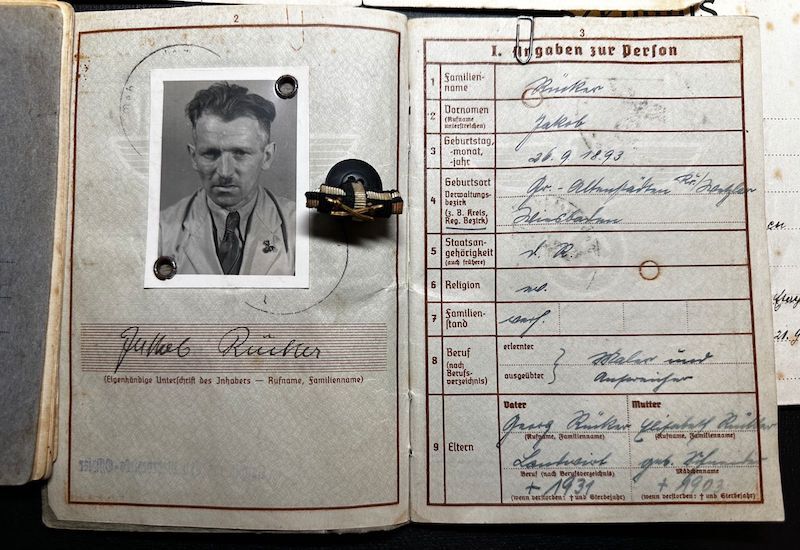 2
Jakob Rücker
(Eigenhändige Unterschrift des Inhabers — Rufname, Familienname)
3
I. Angaben zur Person
1 Familien-
name
Rücker
2 Vornamen
(Rufname
unterstreichen)
Jakob
3 Geburtstag,
-monat,
-jahr
26. 9. 1893
4 Geburtsort
Verwaltungs-
bezirk
(z. B. Kreis,
Reg. Bezirk)
Gr. - Altenstädten Kr./Wetzlar
Wiesbaden
5 Staatsan-
gehörigkeit
(auch frühere)
d. R.
6 Religion
ev.
7 Familien-
stand
verh.
8 Beruf
(nach
Berufs-
verzeichnis)
erlernter
ausgeübter
Maler und
Anstreicher
9 Eltern
Vater
Georg Rücker
(Rufname, Familienname)
Landwirt
Beruf (nach Berufsverzeichnis)
† 1931
(wenn verstorben: † und Sterbejahr)
Mutter
Elisabeth Rücker
(Rufname, Familienname)
geb.
Mädchenname
† 1903
(wenn verstorben: † und Sterbejahr)